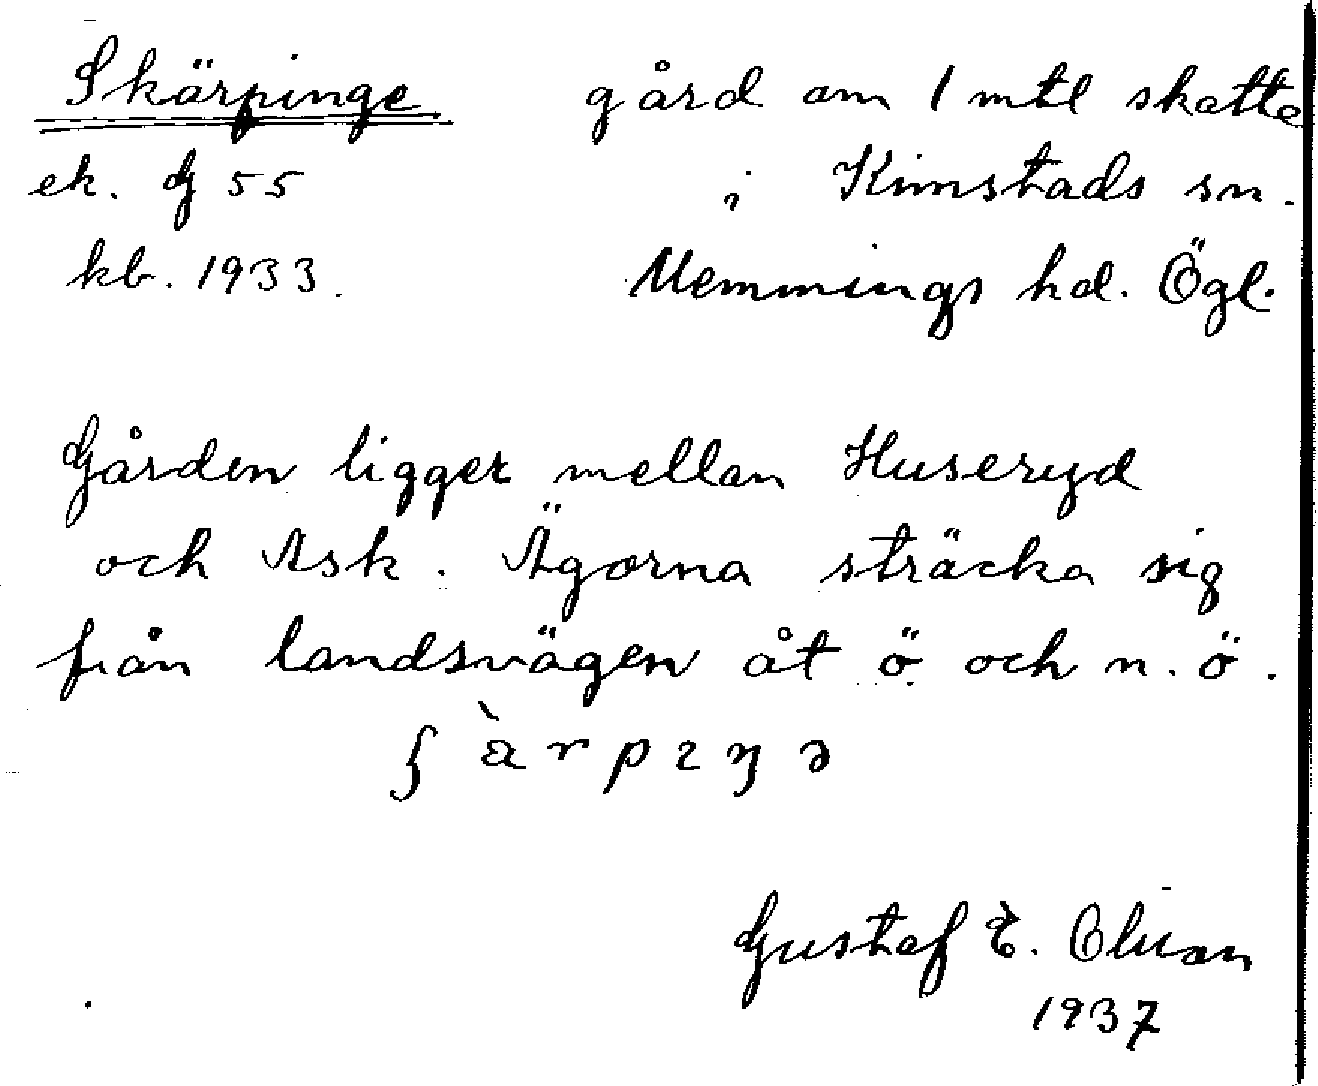 Skärpinge gård om 1 mtl skatte
ek. G 55 i Kimstads sn.
kb. 1933. Memmings hd. Ögl.
Gården ligger mellan Huseryd
och Ask. Ägorna sträcka sig
från landsvägen åt ö och n.ö.
1937